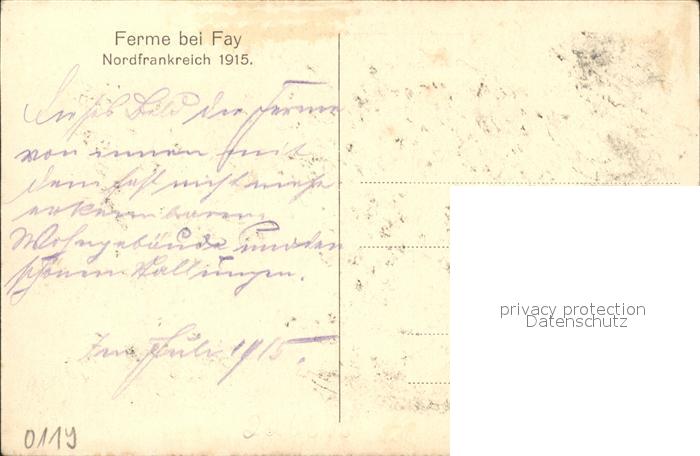 Ferme bei Fay
Nordfrankreich 1915.
Dieses Bild der Ferme
von innen mit
dem fast nicht mehr
erkennbaren
Wohngebäude und den
schönen Stallungen.
Im Juli 1915.
0119
privacy protection
Datenschutz